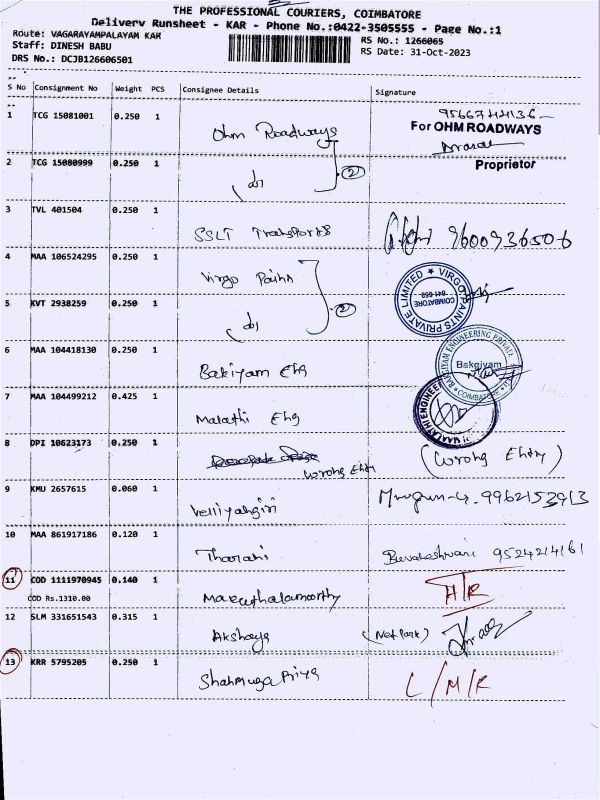 THE PROFESSIONAL COURIERS, COIMBATORE
Delivery Runsheet - KAR - Phone No.:0422-3505555 - Page No.:1
Route: VAGARAYAMPALAYAM KAR
RS No.: 1266065
Staff: DINESH BABU
RS Date: 31-Oct-2023
DRS No.: DCJB126606501
S No Consignment No Weight PCS Consignee Details Signature
1 TCG 15081001 0.250 1 Ohm Roadways
For OHM ROADWAYS
Proprietor
2 TCG 15080999 0.250 1 do
2
3 TVL 401504 0.250 1 SSLT Transports 9600936506
4 MAA 106524295 0.250 1 Virgo
VIRGO PAINTS PRIVATE LIMITED
COIMBATORE
641 659
5 KVT 2938259 0.250 1 do
2
6 MAA 104418130 0.250 1 Bakiyam Eng
BAKIYAM ENGINEERING PRIVATE
Bakgiyam
COIMBATORE
7 MAA 104499212 0.425 1 Malathi Eng
MAALATHI ENGINEER
8 DPI 10623173 0.250 1 Wrong Entry (Wrong Entry)
9 KMU 2657615 0.060 1 Velliyangiri Murugan.G. 9962153913
10 MAA 861917186 0.120 1 Tharani Buvaneshwari 9524214161
11 COD 1111970945 0.140 1 Maruthalamoorthy H/R
COD Rs.1310.00
12 SLM 331651543 0.315 1 Akshaya (Net Park)
13 KRR 5795205 0.250 1 Shanmuga Priya L/M/R